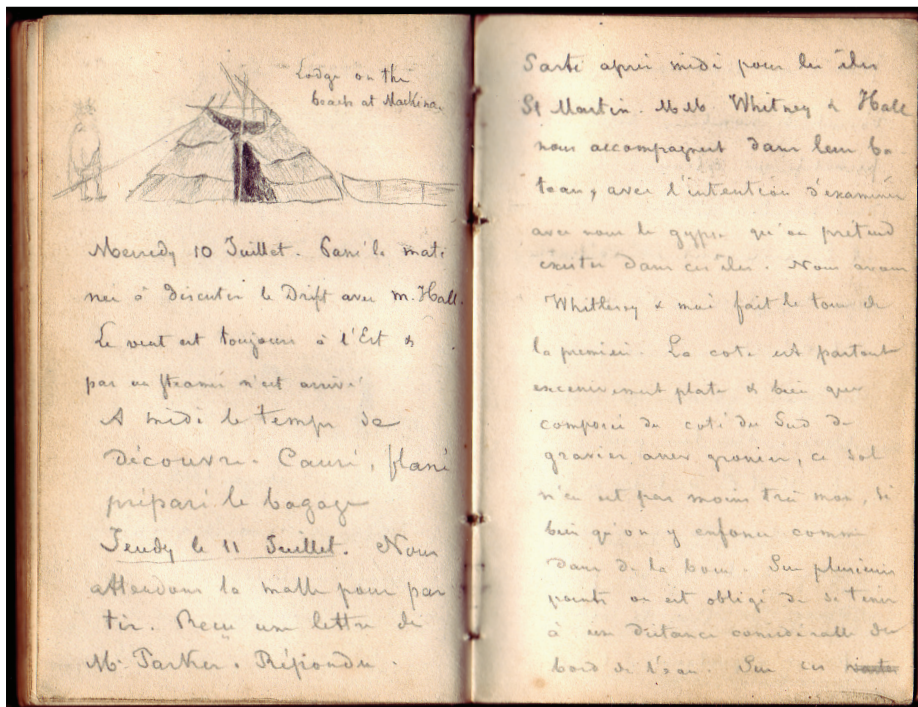 Lodge on the
beach at Mackina.
Mercredy 10 Juillet. Passé la mati
née à discuter le Drift avec M. Hall.
Le vent est toujours à l'Est &
pas un steamer n'est arrivé
A midi le temps se
découvre. Causé, flané
préparé le bagage
Jeudy le 11 Juillet. Nous
attendons la malle pour par
tir. Reçu une lettre de
M. Parker. Répondu.
Sorti après midi pour les iles
St Martin. MM Whitney & Hall
nous accompagnent dans leur ba
teau, avec l'intention d'examiner
avec nous le gypse qu'on prétend
exister dans ces iles. Nous avons
& moi fait le tour de
la première. La cote est partout
excessivement plate & bien que
composée du coté du Sud de
gravier assez grossier, ce sol
n'en est pas moins très mou, si
bien qu'on y enfonce comme
dans de la boue. Sur plusieurs
points on est obligé de se tenir
à une distance considérable du
bord de l'eau. Sur ces